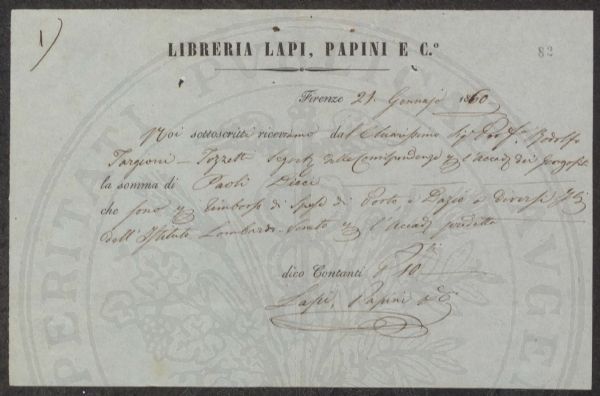 1)
LIBRERIA LAPI, PAPINI E C.º
82
Firenze 21. Gennajo 1860
Noi sottoscritti riceviamo dal Chiarissimo Sigr Prof.r Rodolfo
Targioni-Tozzetti Segret.o delle Corrispondenze dell'Accad. dei Georgofili
la somma di Paoli Dieci
che sono per rimborso di spese di Porto e Dazio a diversi
dell'Istituto Lombardo per l'Accad.a suddetta
dico Contanti P.li 10
Lapi, Papini e C.
PERITATI PUBLICAE AUGEN